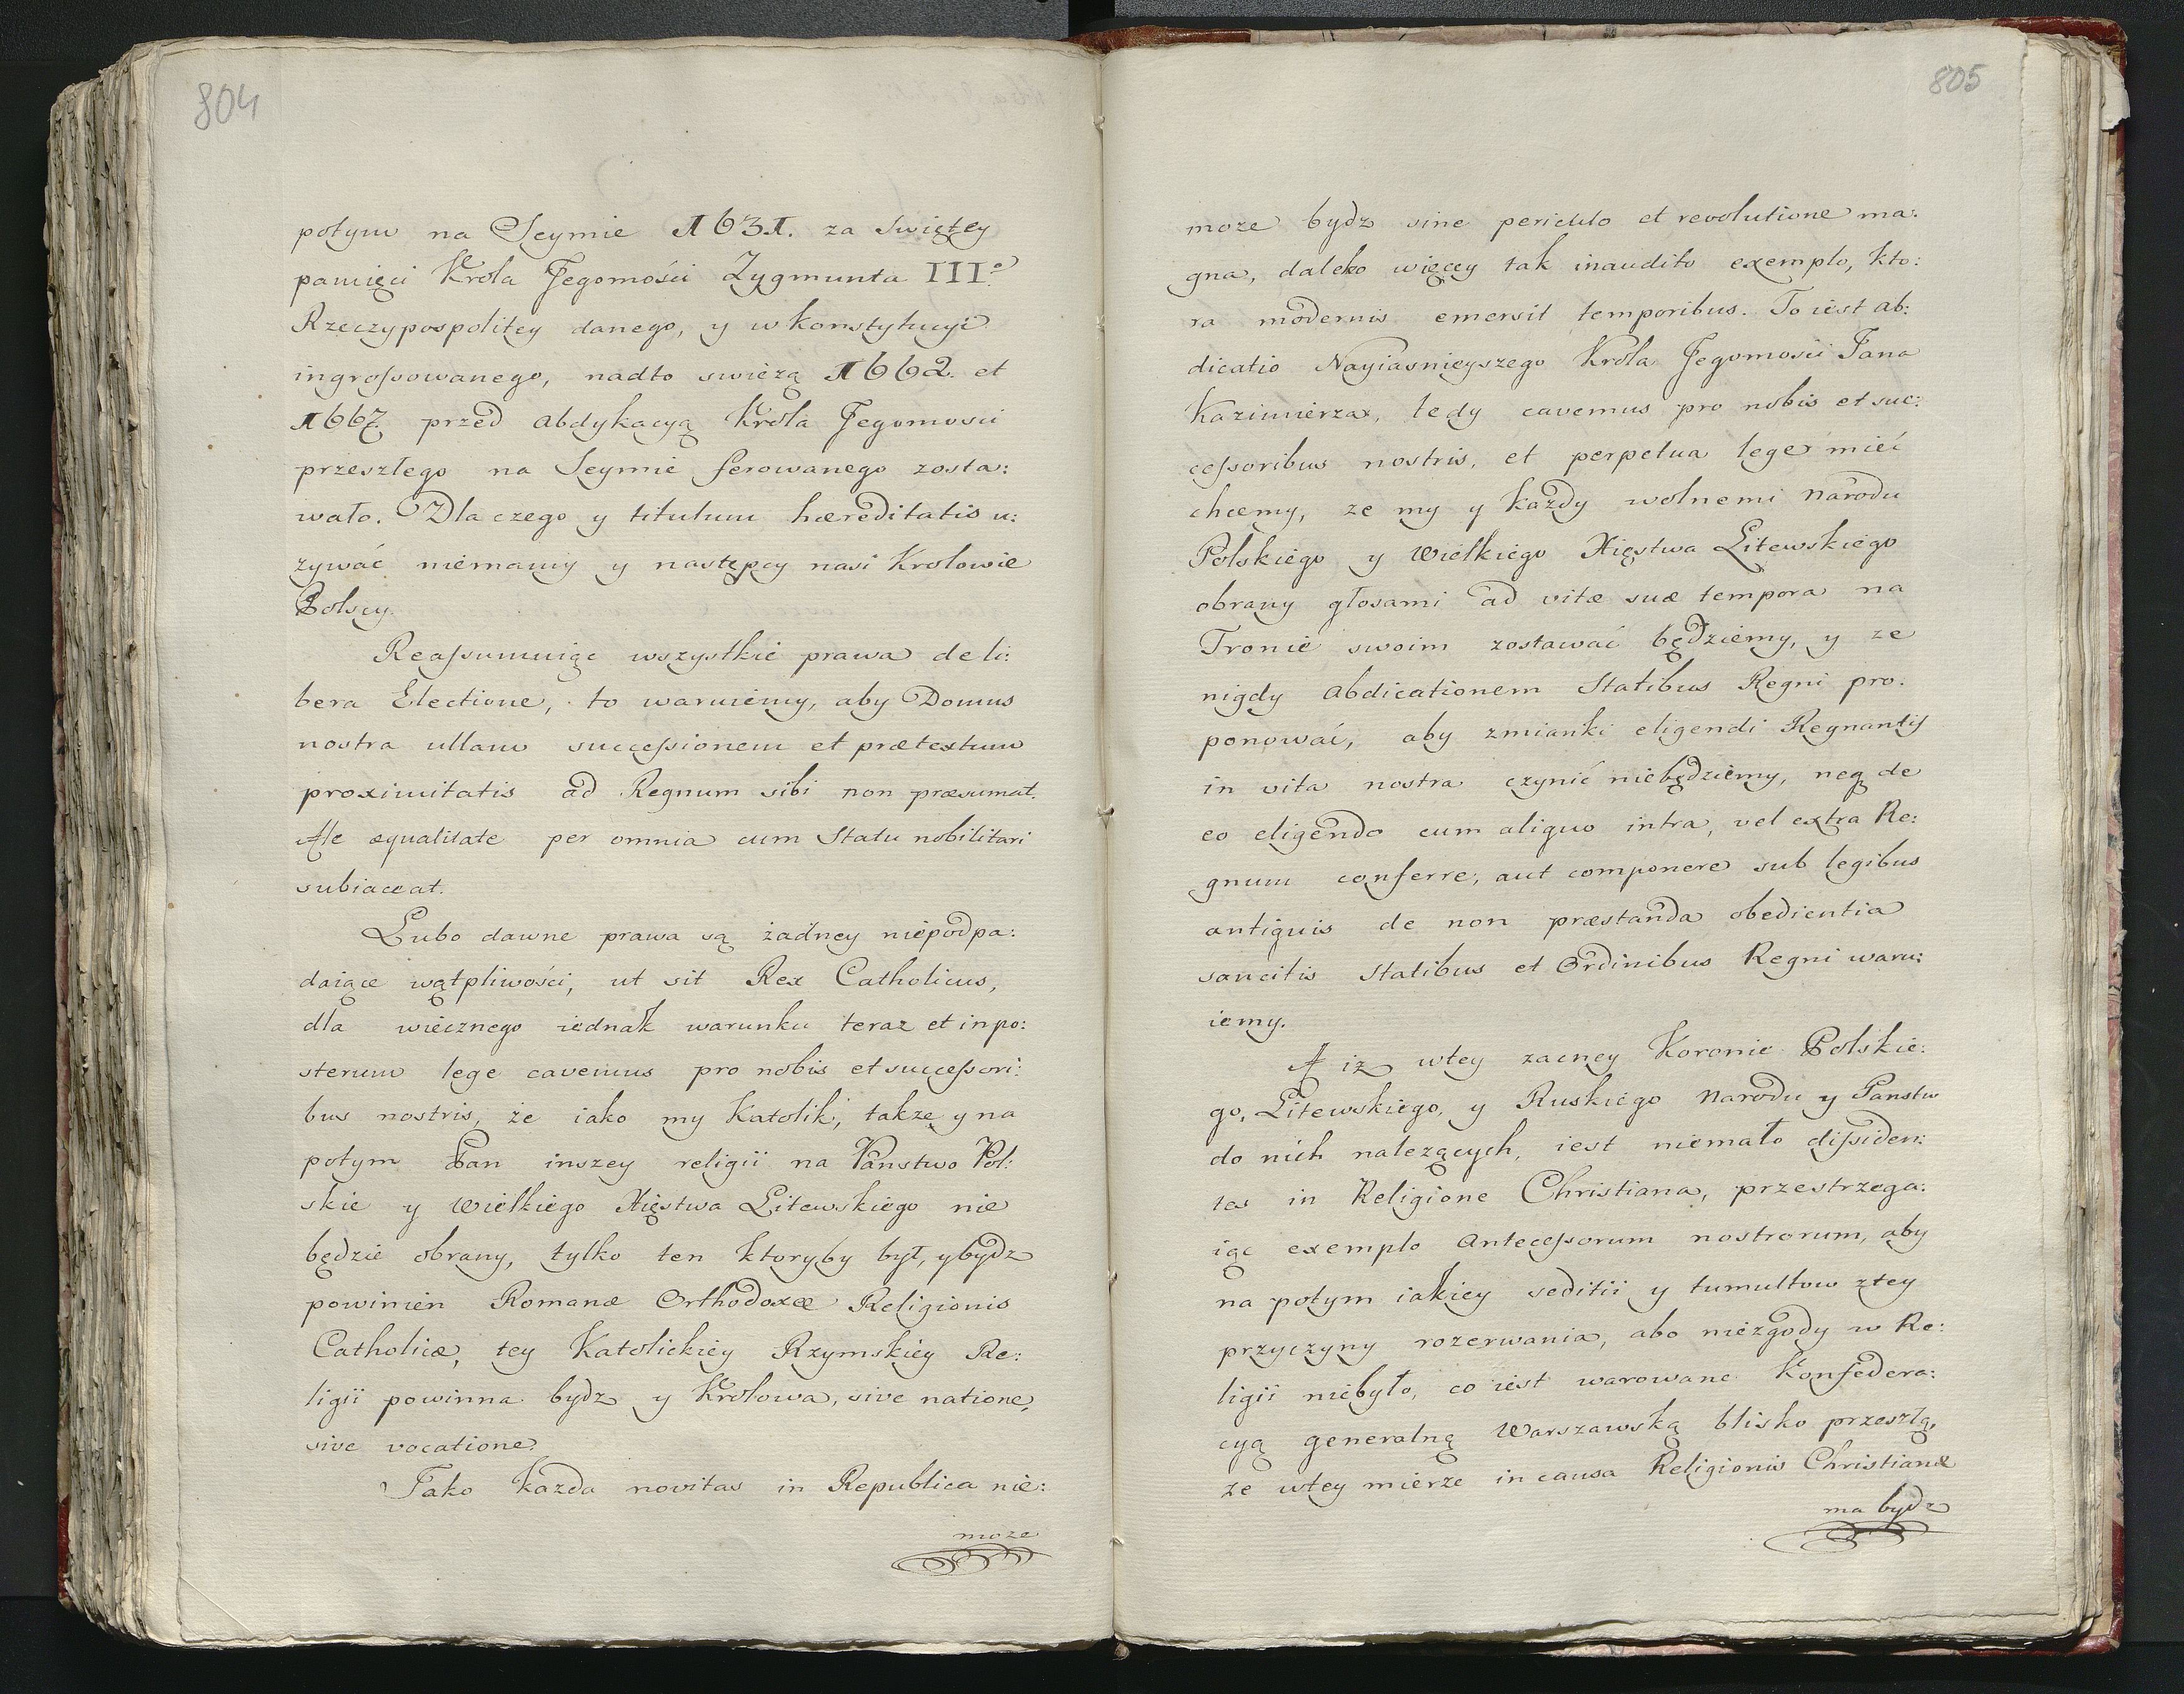 804
potym na Seymie 1631. za swiętey
pamięci Krola Jegomości Zygmunta III.º
Rzeczypospolitey danego, y w konstytucyi
ingrossowanego, nadto swieżą 1662. et
1667. przed abdykacyą Krola Jegomosci
przeszłego na Seymie ferowanego zosta:
wało. Dla czego y titulum hæreditatis u:
zywać niemamy y następcy nasi Krolowie
Polscy.
Reassumuiąc wszystkie prawa de li:
bera Electione, to waruiemy, aby Domus
nostra ullam successionem et prætextum
proximitatis ad Regnum sibi non præsumat.
Ale æqualitate per omnia cum Statu nobilitari
subiaceat.
Lubo dawne prawa są żadney niepodpa:
daiące wątpliwości, ut sit Rex Catholicus,
dla wiecznego iednak warunku teraz et inpo:
sterum lege cavemus pro nobis et successori:
bus nostris, że iako my Katolik, takze y na
potym Pan inszey religii na Państwo Pol:
skie y Wielkiego Xięstwa Litewskiego nie
będzie obrany, tylko ten ktoryby był, y bydz
powinien Romanæ Orthodoxæ Religionis
Catholicæ, tey Katolickiey Rzymskiey Re:
ligii powinna bydz y Krolowa, sive natione,
sive vocatione.
Jako kazda novitas in Republica nie:
moze
805
moze bydz sine periculo et revolutione ma:
gna, daleko więcey tak inaudito exemplo, kto:
ra modernis emersit temporibus. To iest ab:
dicatio Nayiasnieyszego Krola Jegomosci Jana
Kazimierza, tedy cavemus pro nobis et suc:
cessoribus nostris, et perpetua lege mieć
chcemy, ze my y każdy wolnemi narodu
Polskiego y Wielkiego Xięstwa Litewskiego
obrany głosami ad vitæ suæ tempora na
Tronie swoim zostawać będziemy, y ze
nigdy abdicationem Statibus Regni pro:
ponować, aby zmianki eligendi Regnantis
in vita nostra czynić niebędziemy, neq de
eo eligendo cum aliquo intra, vel extra Re:
gnum conferre, aut componere sub legibus
antiquis de non præstanda obedientia
sancitis Statibus et Ordinibus Regni waru:
iemy.
A iz wtey zacney Koronie Polskie:
go, Litewskiego, y Ruskiego Narodu y Panstw
do nich nalezących, iest niemało dissiden:
tes in Religione Christiana, przestrzega:
iąc exemplo Antecessorum nostrorum, aby
na potym iakiey seditii y tumultow ztey
przyczyny rozerwania, abo niezgody w Re:
ligii niebyło, co iest warowane Konfedera:
cyą generalną Warszawską blisko przeszłą,
ze wtey mierze in causa Religionis Christianæ
ma bydz